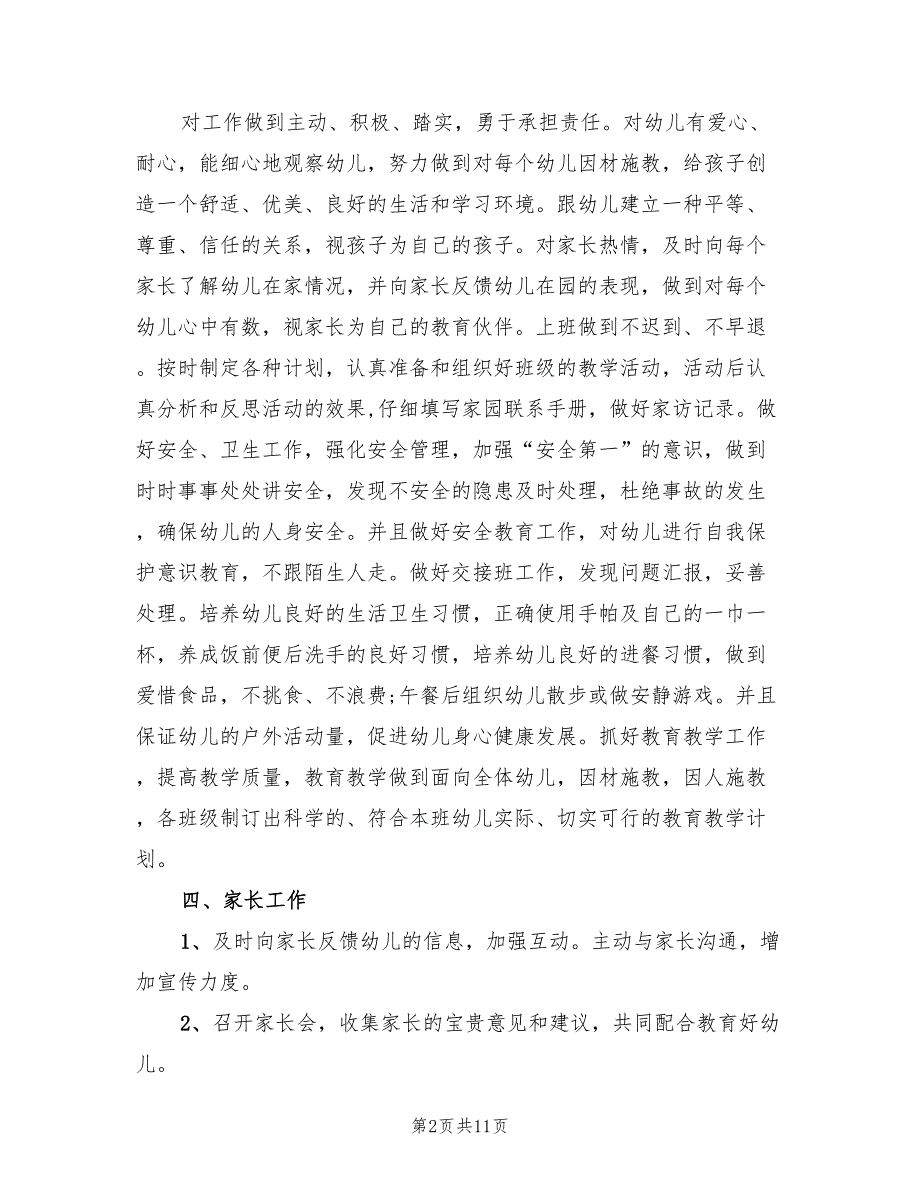 对工作做到主动、积极、踏实，勇于承担责任。对幼儿有爱心、
耐心，能细心地观察幼儿，努力做到对每个幼儿因材施教，给孩子创
造一个舒适、优美、良好的生活和学习环境。跟幼儿建立一种平等、
尊重、信任的关系，视孩子为自己的孩子。对家长热情，及时向每个
家长了解幼儿在家情况，并向家长反馈幼儿在园的表现，做到对每个
幼儿心中有数，视家长为自己的教育伙伴。上班做到不迟到、不早退
。按时制定各种计划，认真准备和组织好班级的教学活动，活动后认
真分析和反思活动的效果,仔细填写家园联系手册，做好家访记录。做
好安全、卫生工作，强化安全管理，加强“安全第一”的意识，做到
时时事事处处讲安全，发现不安全的隐患及时处理，杜绝事故的发生
，确保幼儿的人身安全。并且做好安全教育工作，对幼儿进行自我保
护意识教育，不跟陌生人走。做好交接班工作，发现问题汇报，妥善
处理。培养幼儿良好的生活卫生习惯，正确使用手帕及自己的一巾一
杯，养成饭前便后洗手的良好习惯，培养幼儿良好的进餐习惯，做到
爱惜食品，不挑食、不浪费;午餐后组织幼儿散步或做安静游戏。并且
保证幼儿的户外活动量，促进幼儿身心健康发展。抓好教育教学工作
，提高教学质量，教育教学做到面向全体幼儿，因材施教，因人施教
，各班级制订出科学的、符合本班幼儿实际、切实可行的教育教学计
划。
四、家长工作
1、及时向家长反馈幼儿的信息，加强互动。主动与家长沟通，增
加宣传力度。
2、召开家长会，收集家长的宝贵意见和建议，共同配合教育好幼
儿。
第2页共11页